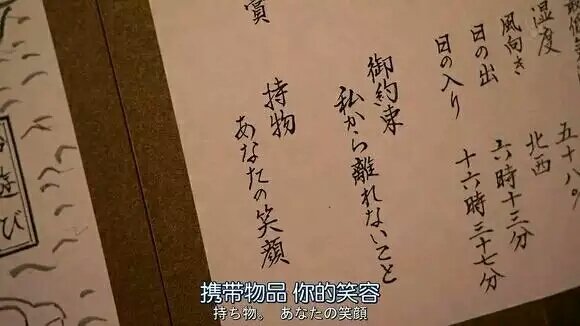 湿度 五十八%
風向き 北西
日の出 六時十三分
日の入り 十六時三十七分
御約束
私から離れないこと
持物
あなたの笑顔
賞
遊び
携带物品 你的笑容
持ち物。 あなたの笑顔